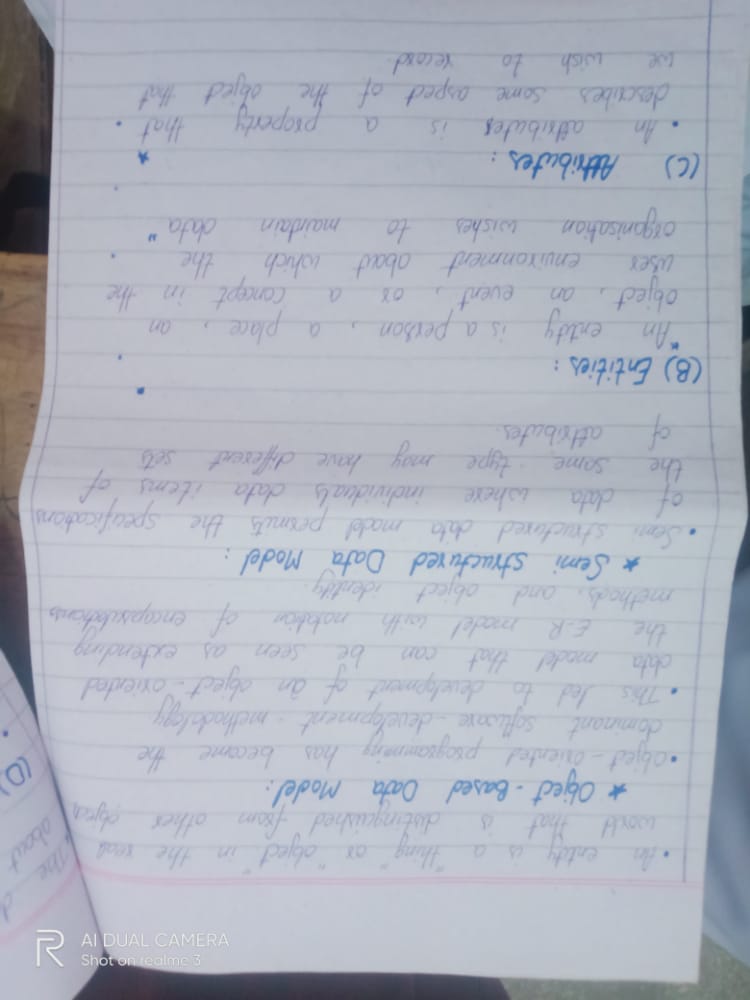 • An entity is a "thing" or "object" in the real
world that is distinguished from other object
★ Object-Based Data Model:
• Object-oriented programming has become the
dominant software-development-methodology
• This led to development of an object-oriented
data model that can be seen as extending
the E-R model with notation of encapsulations
methods, and object identity.
★ Semi structured Data Model:
• Semi structured data model permits the specifications
of data where individuals data items of
the same type may have different sets
of attributes.
(B) Entities:
★ An entity is a person, a place, an
object, an event, or a concept in the
user environment about which the
organisation wishes to maintain data"
(C) Attributes:
• An attributes is a property that
describes some aspect of the object that
we wish to record.
The d
about
(D)
AI DUAL CAMERA
Shot on realme 3